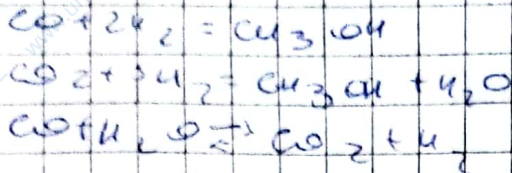 CO + 2H2 = CH3OH
CO2 + 3H2 = CH3OH + H2O
CO + H2O ⇌ CO2 + H2